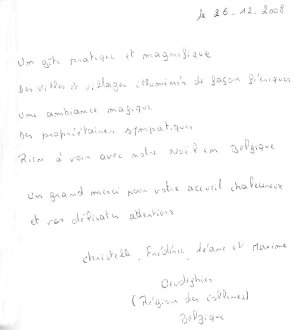 le 26.12.2008
Un gîte pratique et magnifique
Des villes et villages illuminés de façon féeriques
Une ambiance magique
Des propriétaires sympatiques
Rien à voir avec notre Noël en Belgique
Un grand merci pour votre accueil chaleureux
et vos délicates attentions
Christelle, Frédéric, et Maxime
(Région des collines)
Belgique